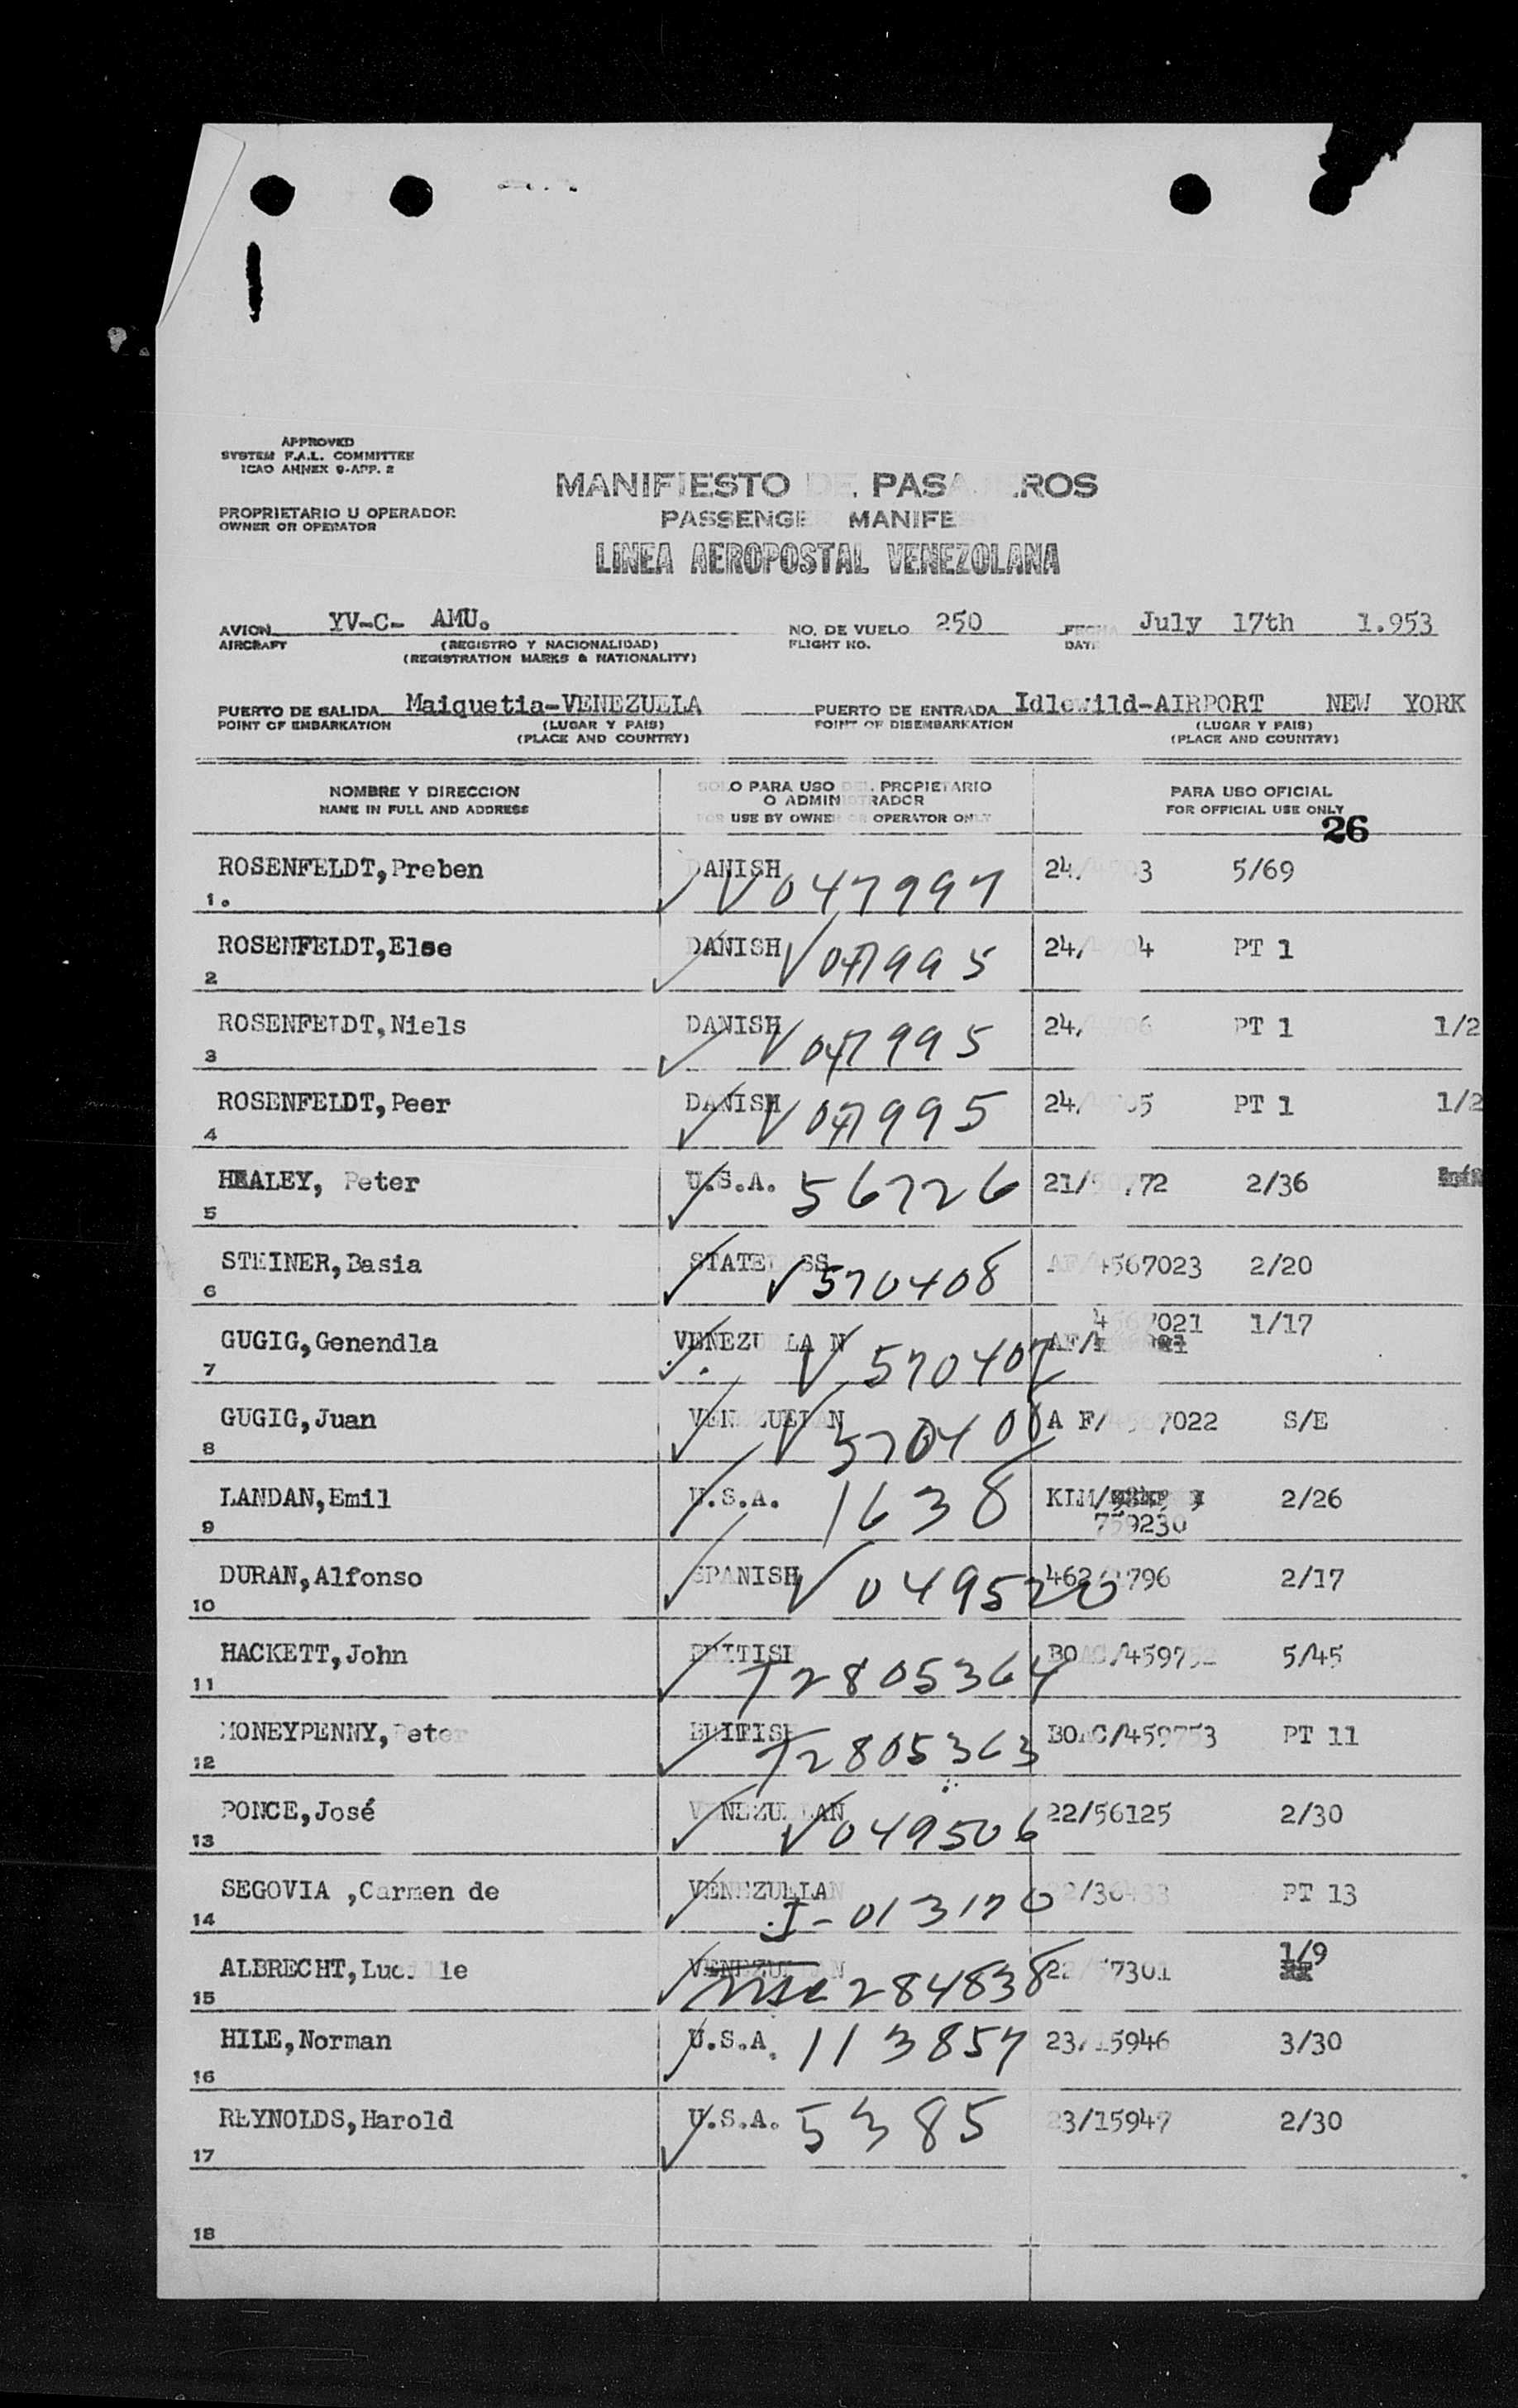 APPROVED
SYSTEM F.A.L. COMMITTEE
ICAO ANNEX 9-APP. 2
MANIFIESTO DE PASAJEROS
PROPRIETARIO U OPERADOR
OWNER OR OPERATOR
PASSENGER MANIFEST
LINEA AEROPOSTAL VENEZOLANA
AVION YV-C- AMU. NO. DE VUELO 250 FECHA July 17th 1.953
AIRCRAFT (REGISTRO Y NACIONALIDAD) FLIGHT NO. DATE
(REGISTRATION MARKS & NATIONALITY)
PUERTO DE SALIDA Maiquetia-VENEZUELA PUERTO DE ENTRADA Idlewild-AIRPORT NEW YORK
POINT OF EMBARKATION (LUGAR Y PAIS) POINT OF DISEMBARKATION (LUGAR Y PAIS)
(PLACE AND COUNTRY) (PLACE AND COUNTRY)
NOMBRE Y DIRECCION SOLO PARA USO DEL PROPIETARIO PARA USO OFICIAL
O ADMINISTRADOR
NAME IN FULL AND ADDRESS FOR USE BY OWNER OR OPERATOR ONLY FOR OFFICIAL USE ONLY
26
ROSENFELDT,Preben DANISH 24/ 3 5/69
1. V047997
ROSENFELDT,Else DANISH V047995 24/ 4 PT 1
2
ROSENFELDT,Niels DANISH V047995 24/ 6 PT 1 1/2
3
ROSENFELDT,Peer DANISH V047995 24/ 05 PT 1 1/2
4
HEALEY, Peter U.S.A. 56726 21/ 72 2/36
5
STEINER,Basia STATELESS V570408 AF/4567023 2/20
6
4567021 1/17
GUGIG,Genendla VENEZUELAN V570407 AF/
7
GUGIG,Juan VENEZUELAN A F/4567022 S/E
8
LANDAN,Emil U.S.A. 1638 KLM/ 2/26
9 759230
DURAN,Alfonso SPANISH V049520 462/ 796 2/17
10
HACKETT,John BRITISH T2805364 BOAC/459752 5/45
11
MONEYPENNY,Peter BRITISH T2805363 BOAC/459753 PT 11
12
PONCE,José VENEZUELAN V049506 22/56125 2/30
13
SEGOVIA ,Carmen de VENEZUELAN 22/36433 PT 13
14 I-013170
1/9
ALBRECHT,Lucille VENEZUELAN 284838 22/57301
15
HILE,Norman U.S.A. 113857 23/15946 3/30
16
REYNOLDS,Harold U.S.A. 5385 23/15947 2/30
17
18